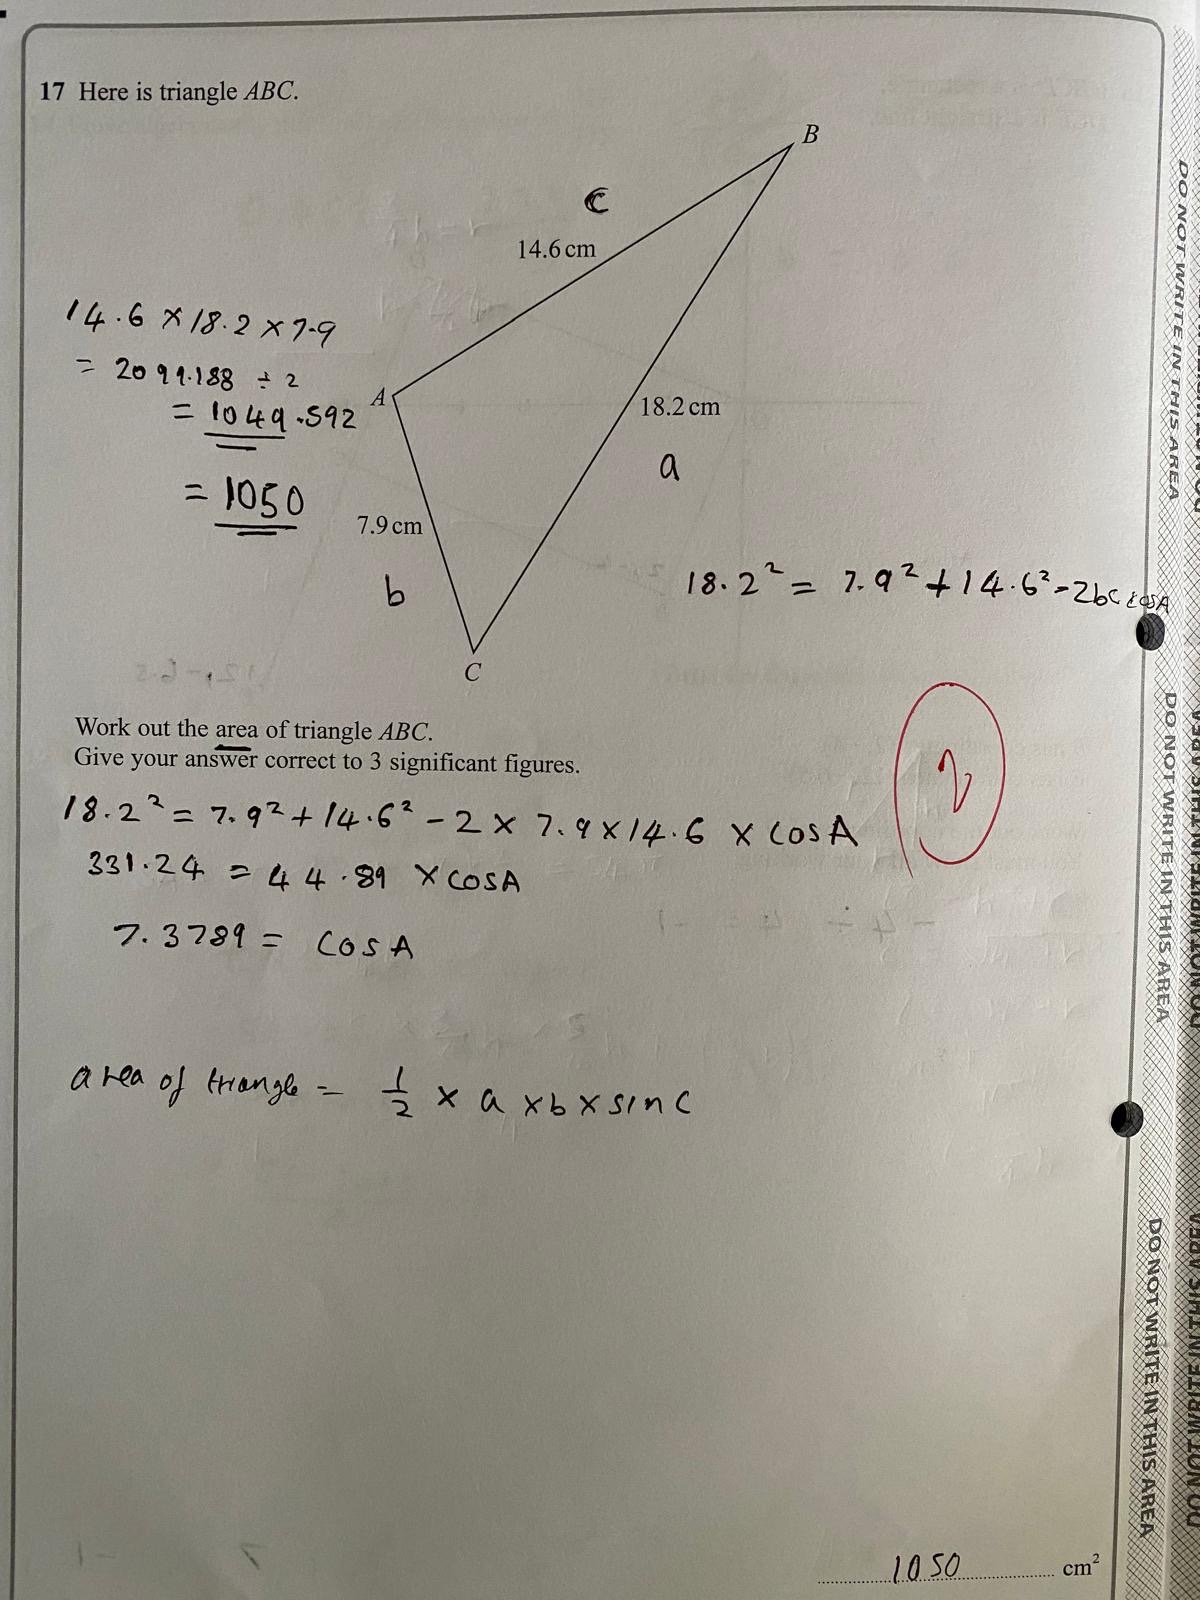 17 Here is triangle ABC.
B
c
14.6 cm
14.6 × 18.2 × 7.9
= 2099.188 ÷ 2
= 1049.592
= 1050
A
18.2 cm
a
7.9 cm
b
18.2² = 7.9² + 14.6² - 2bc cosA
C
Work out the area of triangle ABC.
Give your answer correct to 3 significant figures.
2
18.2² = 7.9² + 14.6² - 2 × 7.9 × 14.6 × cosA
331.24 = 44.89 × cosA
7.3789 = cosA
area of triangle = 1/2 × a × b × sin C
1050 cm²
DO NOT WRITE IN THIS AREA
DO NOT WRITE IN THIS AREA
DO NOT WRITE IN THIS AREA